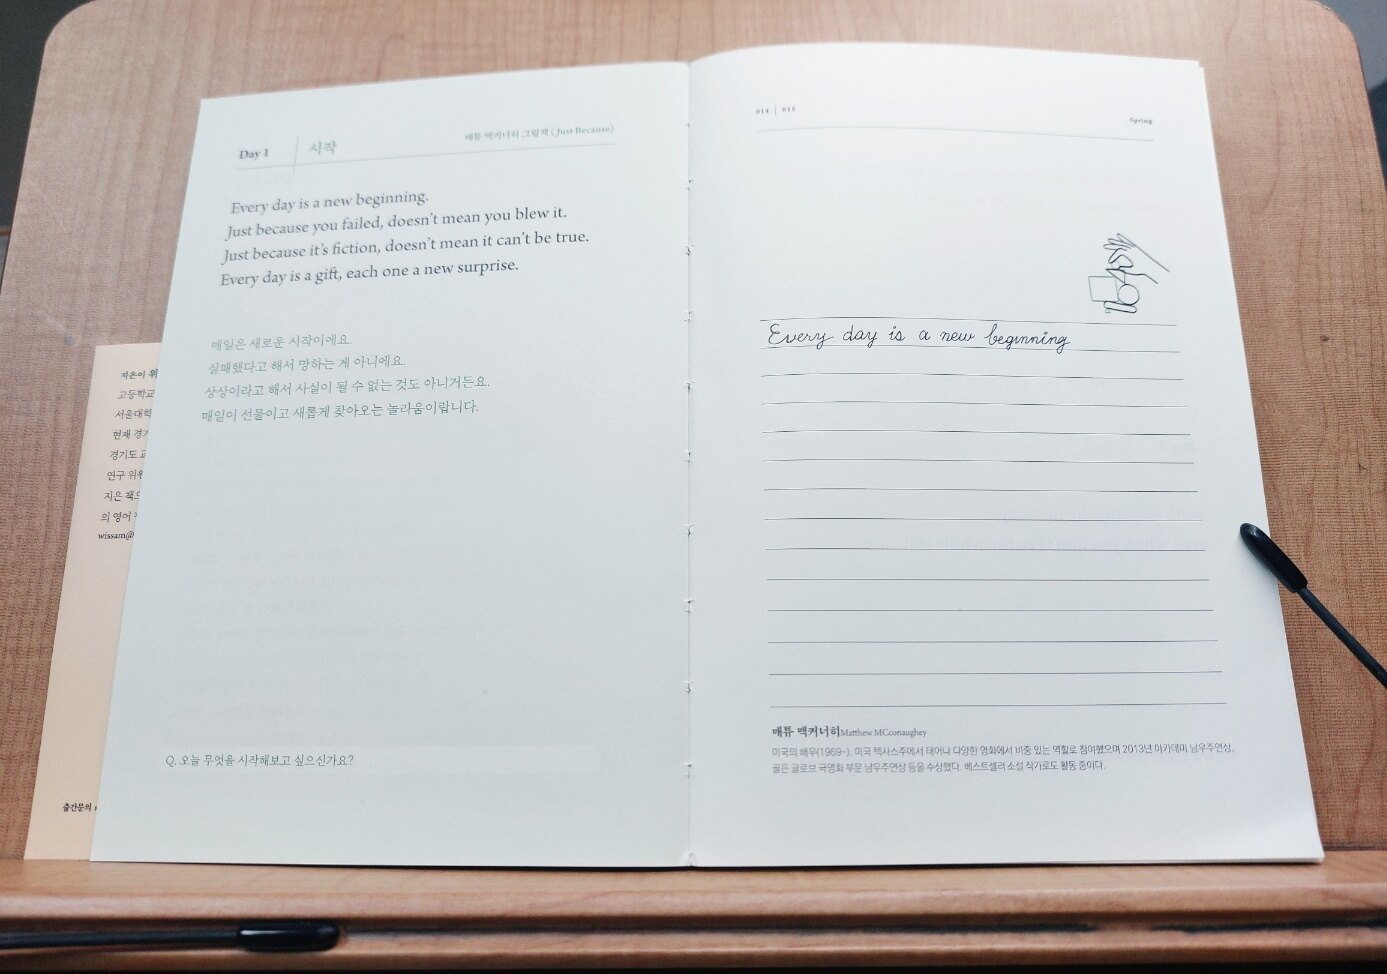 Day 1
시작
매튜 맥커너히 그림책 《Just Because》
Every day is a new beginning.
Just because you failed, doesn't mean you blew it.
Just because it's fiction, doesn't mean it can't be true.
Every day is a gift, each one a new surprise.
매일은 새로운 시작이에요.
실패했다고 해서 망하는 게 아니에요.
상상이라고 해서 사실이 될 수 없는 것도 아니거든요.
매일이 선물이고 새롭게 찾아오는 놀라움이랍니다.
Q. 오늘 무엇을 시작해보고 싶으신가요?
지은이
고등학교
서울대학
현재 경기
경기도
연구 위원
지은 책으
의 영어
wissam@
출간문의
014 | 015
Spring
Every day is a new beginning
매튜 맥커너히 Matthew MCconaughey
미국의 배우(1969~). 미국 텍사스주에서 태어나 다양한 영화에서 비중 있는 역할로 참여했으며 2013년 아카데미 남우주연상,
골든 글로브 극영화 부문 남우주연상 등을 수상했다. 베스트셀러 소설 작가로도 활동 중이다.